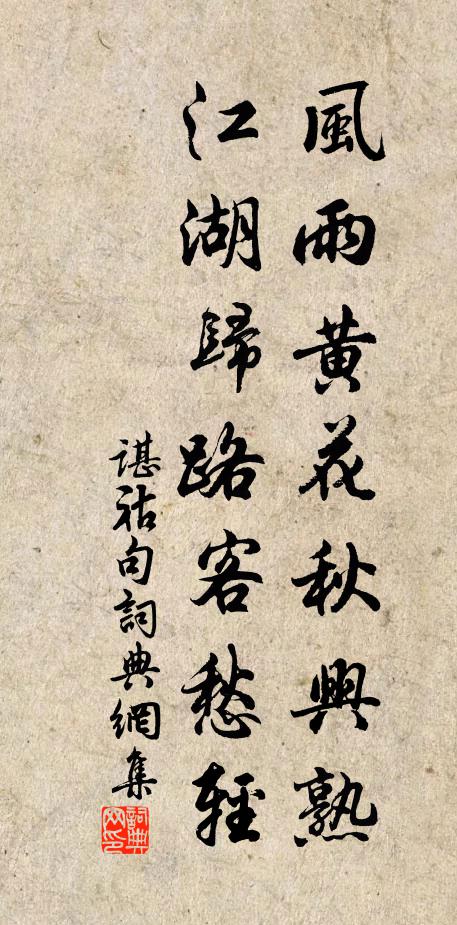 風雨黄花秋興熟
江湖歸路客愁輕
諶祜句詞典網集
詞典网印